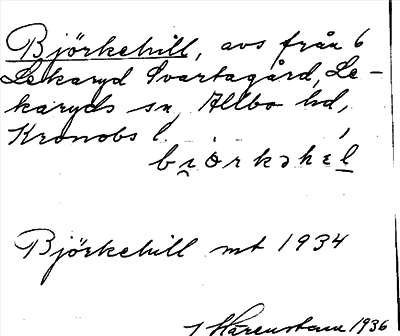 Björkehill, avs från 6
Lekaryd Svartagård, Le-
karyds sn, Allbo hd,
Kronobs l.
bi̯örkəhil
Björkehill mt 1934
Harenstam 1936